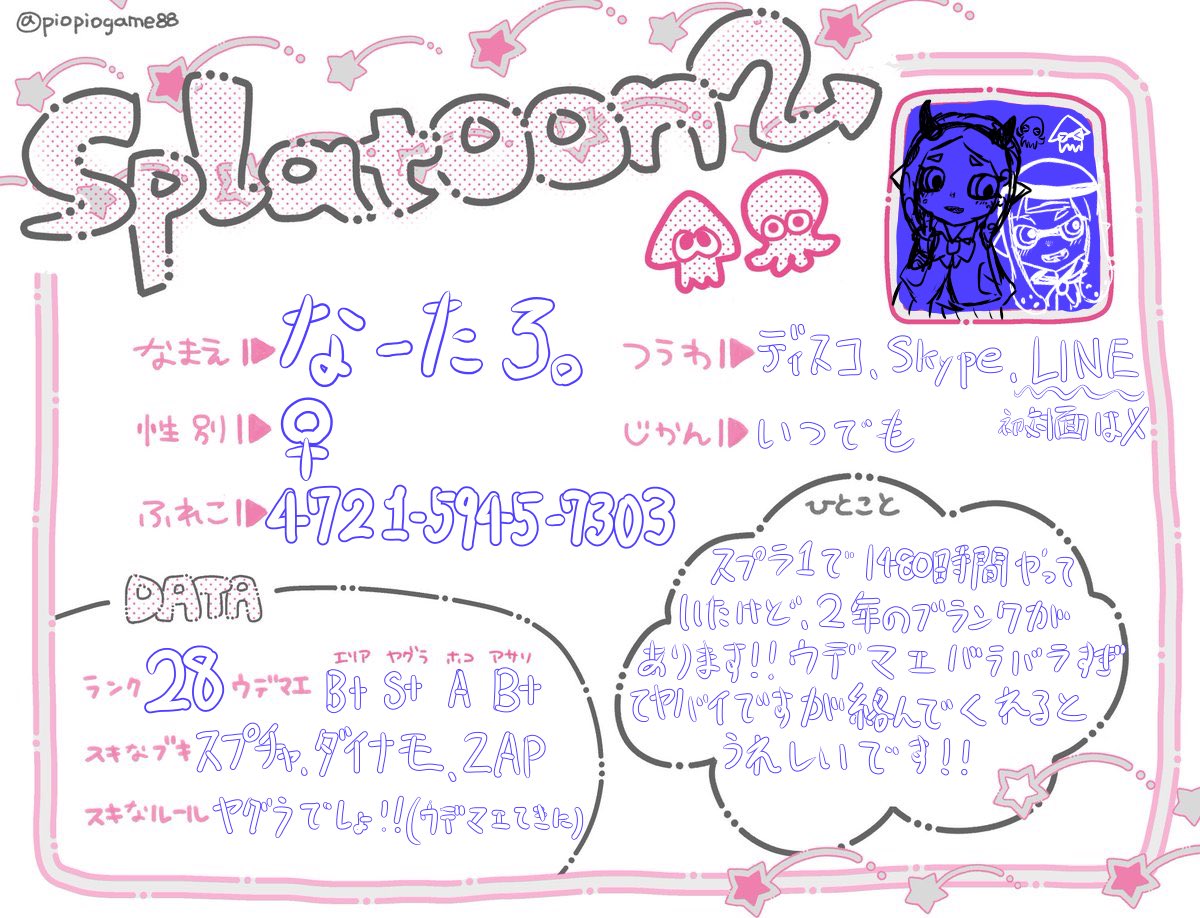 @piopiogame88
Splatoon2
なまえ なーたろ。
つうわ ディスコ、Skype、LINE
初対面は×
性別 ♀
じかん いつでも
ふれこ 4721-5945-7303
ひとこと
スプラ1で1480時間やって
いたけど、2年のブランクが
あります!!ウデマエバラバラすぎ
てヤバイですが絡んでくれると
うれしいです!!
DATA
エリア ヤグラ ホコ アサリ
ランク 28 ウデマエ B+ S+ A B+
スキなブキ スプチャ、ダイナモ、ZAP
スキなルール ヤグラでしょ!!(ウデマエてきに)